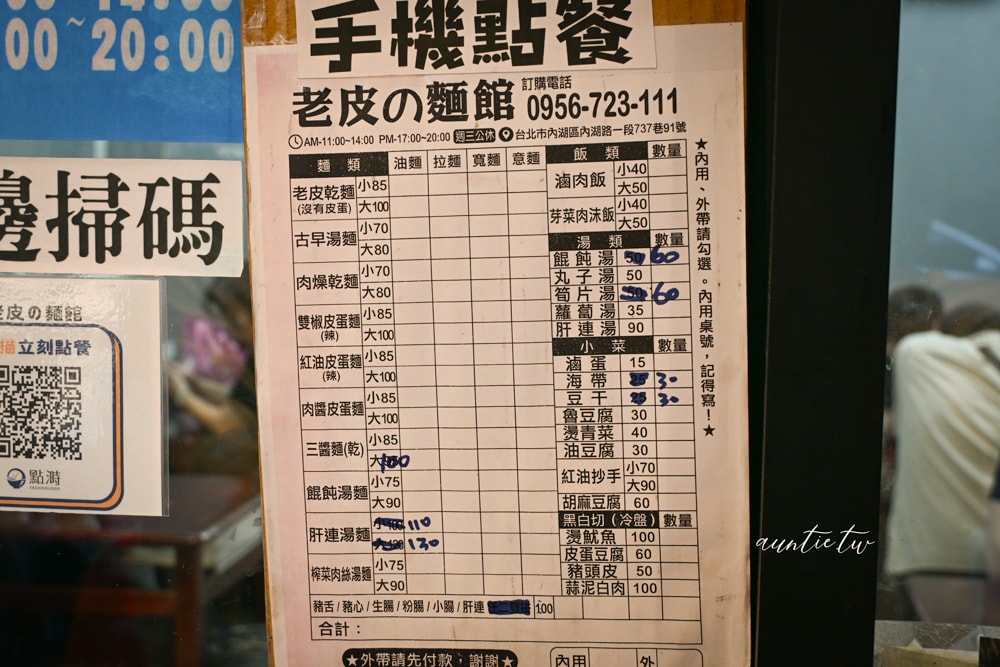 00~20:00
手機點餐
老皮の麵館 訂購電話 0956-723-111
AM-11:00~14:00 PM-17:00~20:00 週三公休 台北市內湖區內湖路一段737巷91號
麵類 油麵 拉麵 寬麵 意麵
老皮乾麵 (沒有皮蛋) 小85
大100
古早湯麵 小70
大80
肉燥乾麵 小70
大80
雙椒皮蛋麵 (辣) 小85
大100
紅油皮蛋麵 (辣) 小85
大100
肉醬皮蛋麵 小85
大100
三醬麵(乾) 小85
大 100
餛飩湯麵 小75
大90
肝連湯麵 小 110
大 130
榨菜肉絲湯麵 小75
大90
豬舌 / 豬心 / 生腸 / 粉腸 / 小腸 / 肝連 100
合計：
飯類 數量
滷肉飯 小40
大50
芽菜肉沫飯 小40
大50
湯類 數量
餛飩湯 50 60
丸子湯 50
筍片湯 50 60
蘿蔔湯 35
肝連湯 90
小菜 數量
滷蛋 15
海帶 25 30
豆干 25 30
魯豆腐 30
燙青菜 40
油豆腐 30
紅油抄手 小70
大90
胡麻豆腐 60
黑白切（冷盤） 數量
燙魷魚 100
皮蛋豆腐 60
豬頭皮 50
蒜泥白肉 100
★內用、外帶請勾選。內用桌號，記得寫！★
★外帶請先付款，謝謝★
內用 外
邊掃碼
老皮の麵館
描立刻點餐
點溡
auntie.tw